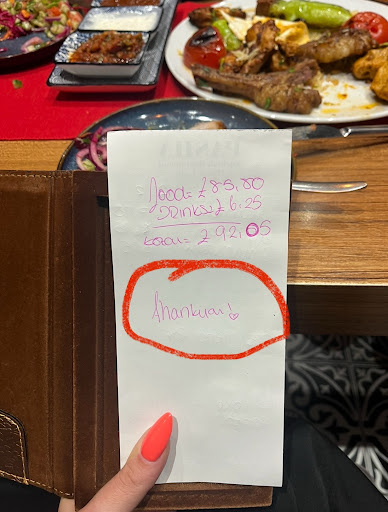 Food= £85,80
DRINKS £6.25
total= £92,05
thankyou!